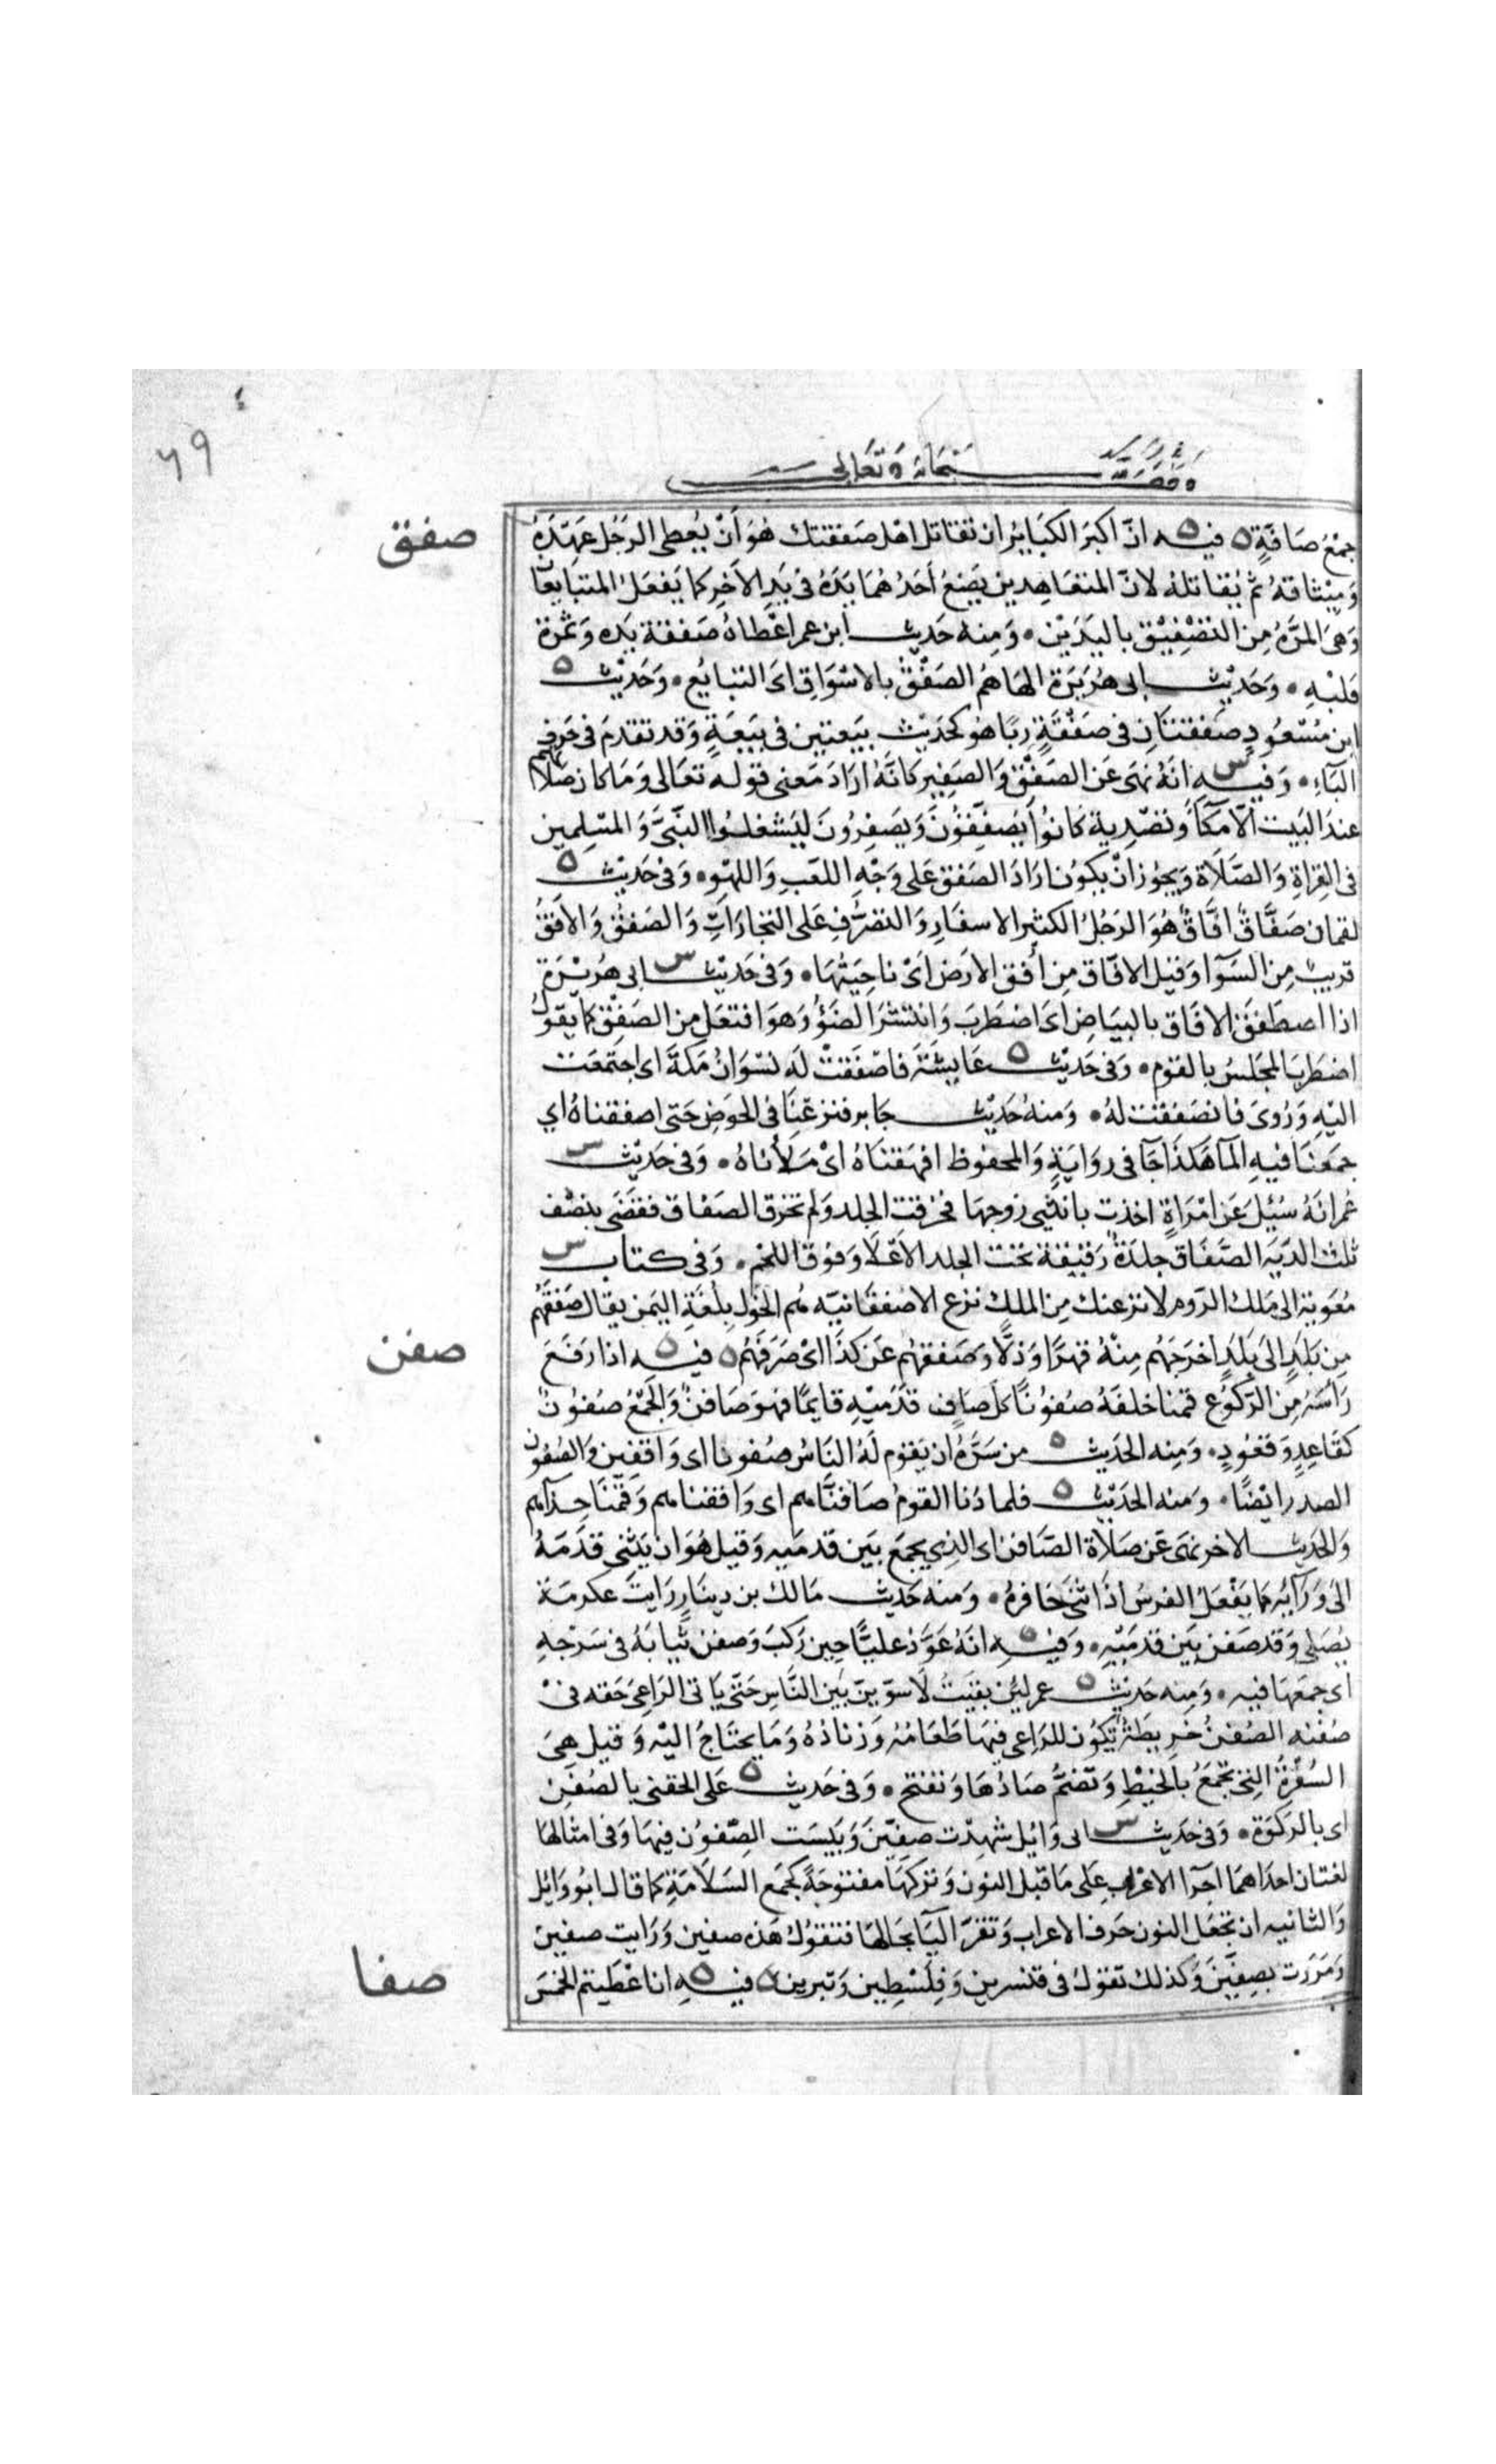 ٦٩
وقف
سبحانه وتعالى
صفق
جمع صافة ه فيه ان اكبر الكبائر ان تقاتل اهل صفقتك هو أن يُعطى الرجل عهده
وميثاقه ثم يُقاتله لان المتعاهدين يضع أحدهما يده فى يد الاخر كما يفعل المتبايعان
وهى المرّة من التصفيق باليدين • ومنه حديث ابن عمر اعطاه صفقة يده وثمرة
قلبه • وحديث ابى هريرة الهاهم الصفق بالاسواق اى التبايع • وحديث ه
ابن مسعود صفقتان فى صفقة ربا هو كحديث بيعتين فى بيعة وقد تقدم فى حرف
الباء • وفيه س انه نهى عن الصفق والصفير كانه اراد معنى قوله تعالى وما كان صلاتهم
عند البيت الا مكآً وتصدية كانوا يصفقون ويصفرون ليشغلوا النبىّ والمسلمين
فى القراة والصلاة ويجوز انْ يكون اراد الصفق على وجه اللعب واللهو • وفى حديث ه
لقمان صفّاق افّاق هو الرجل الكثير الاسفار والتصرف على التجارات والصفق والافق
قريب من السوآ وقيل الافّاق من أفق الارض اىْ ناحيتها • وفى حديث س ابى هريرة
اذا اصطفق الافاق بالبياض اى اضطرب وانتشر الضوُ وهو افتعل من الصفق كما يقول
اضطرب المجلس بالقوم • وفى حديث ه عايشة فاصفقت له نسوان مكة اى اجتمعت
اليه وروى فانصفقت له • ومنه حديث جابر فنزعنا فى الحوض حتى اصفقناه اي
جمعنا فيه المآ هكذا جآ فى رواية والمحفوظ افهقناه اىْ ملأناه • وفى حديث س
عمر انه سئيل عن امراة اخذت بانثيى زوجها فخرقت الجلد ولم تخرق الصفاق فقضى بنصف
ثلث الدية الصفاق جلدة رقيقة تحت الجلد الاعلا وفوق اللحم • وفى كتاب س
معوية الى ملك الروم لانزعنك من الملك نزع الاصفقانيه هم الخول بلغة اليمن يقال صفقهم
صفن
من بلد الى بلد اخرجهم منه قهرا وذلّا وصفقهم عن كذا اىْ صرفهم ه فيه ه اذا رفع
رأسه من الركوع قمنا خلفه صفونا كل صاف قدميه قايما فهو صافن والجمع صفون
كقاعد وقعود • ومنه الحديث ه من سرّه ان يقوم له الناس صفونا اى واقفين والصفون
المصدر ايضا • ومنه الحديث ه فلما دنا القوم صافنّاهم اى واقفناهم وقمنا حذآهم
والحديث الاخر نهى عن صلاة الصافن اى الذي يجمع بين قدميه وقيل هو ان يثنى قدمه
الى ورآيه كما يفعل الفرس اذا ثنى حافره • ومنه حديث مالك بن دينار رايت عكرمة
يُصلى وقد صفن بين قدميه • وفيه ه انه عوّذ عليّا حين ركب وصفن ثيابه فى سرجه
اى جمعها فيه • ومنه حديث ه عمر لئن بقيت لاسوّينّ بين الناس حتى ياتى الراعى حقه فى
صفنه الصفن خريطة تكون للراعى فيها طعامه وزناده وما يحتاج اليه وقيل هى
السفرة التى تجمع بالخيط وتضم صادها وتفتح • وفى حديث ه على الحقنى بالصفن
اى بالركوة • وفى حديث س ابى وايل شهدت صفين وبيست الصفون فيها وفى امثالها
لغتان احداهما اجرا الاعراب على ما قبل النون وتركها مفتوحة كجمع السلامة كما قال ابو وايل
والثانيه ان تجعل النون حرف الاعراب وتقرّ اليآ بحالها فتقول هذه صفين ورايت صفين
صفا
ومررت بصفين وكذلك تقول فى قنسرين وفلسطين وتبرين ه فيه ه ان اعطيتم الخمس